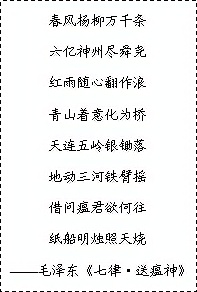 春风杨柳万千条
六亿神州尽舜尧
红雨随心翻作浪
青山着意化为桥
天连五岭银锄落
地动三河铁臂摇
借问瘟君欲何往
纸船明烛照天烧
——毛泽东《七律·送瘟神》